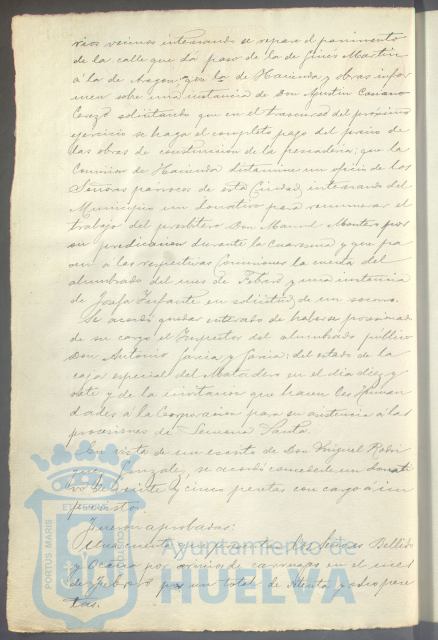 rios vecinos interesando se repare el pavimento
de la calle que da paso de la de Ginés Martín
á la de Aragón: que la de Hacienda y obras infor
men sobre una instancia de Don Agustin
solicitando que en el trascurso del próximo
ejercicio se haga el completo pago del precio de
las obras de construccion de la pescaderia; que la
Comision de Hacienda dictamine un oficio de los
Señores parrocos de esta Ciudad, interesando del
Municipio un donativo para remunerar el
trabajo del presbitero Don Manuel Montero por
su predicacion durante la Cuaresma y que pa
sen á las respectivas Comisiones la cuenta del
alumbrado del mes de Febrero y una instancia
de Josefa Infante en solicitud de un socorro.
Se acordó quedar enterado de haberse posesionado
de su cargo el Inspector del alumbrado público
Don Antonio Garcia y Garcia: del estado de la
caja especial del Matadero en el dia diez y
siete y de la invitacion que hacen las Herman
dades á la Corporacion para su asistencia á las
procesiones de Semana Santa.
En vista de un escrito de Don Miguel Rodri
guez Gonzalez, se acordó concederle un donati
vo de veinte y cinco pesetas con cargo á im
previstos.
Fueron aprobadas:
Una cuenta que presentan los Señores Bellido
y Ocaña por servicio de carruages en el mes
de Febrero por un total de ochenta y dos pese
tas.
PORTUS MARIS
ET TERRÆ
CUSTODIA
Ayuntamiento de
HUELVA